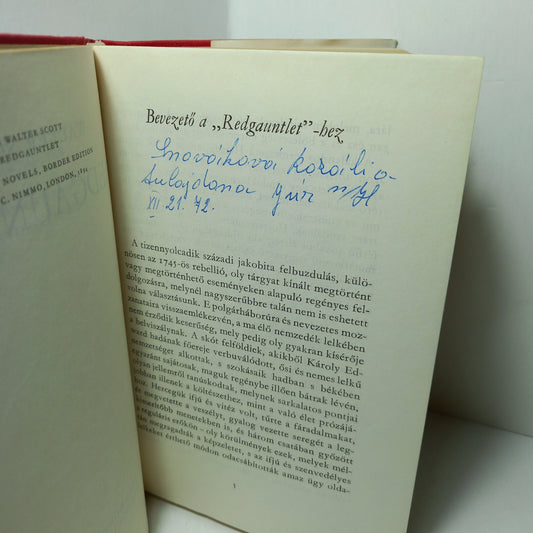 WALTER SCOTT
REDGAUNTLET
NOVELS, BORDER EDITION
C. NIMMO, LONDON, 1894
Bevezető a „Redgauntlet”-hez
tulajdona Gúr n/H
VII 21. 72.
A tizennyolcadik századi jakobita felbuzdulás, külö-
nösen az 1745-ös rebellió, oly tárgyat kínált megtörtént
vagy megtörténhető eseményeken alapuló regényes fel-
dolgozásra, melynél nagyszerűbbre talán nem is eshetett
volna választásunk. E polgárháborúra és nevezetes moz-
zanataira visszaemlékezvén, a ma élő nemzedék lelkében
nem érződik keserűség, mely pedig oly gyakran kísérője
a belviszálynak. A skót felföldiek, akikből Károly Ed-
ward hadának főereje verbuválódott, ősi és nemes lelkű
nemzetséget alkottak, s szokásaik hadban s békében
egyaránt sajátosak, maguk regénybe illően bátrak lévén,
olyan jellemről tanúskodtak, melynek sarkalatos pontjai
jobban illenek a költészethez, mint a való élet prózájá-
hoz. Hercegük ifjú és vitéz volt, tűrte a fáradalmakat,
és megvetette a veszélyt, gyalog vezette seregét a leg-
keserítőbb menetekben is, és három csatában győzött
a reguláris erőkön – oly körülmények ezek, melyek mél-
tán megragadták a képzeletet, s az ifjú és szenvedélyes
lelkeket érthető módon odacsábították amaz ügy olda-
5